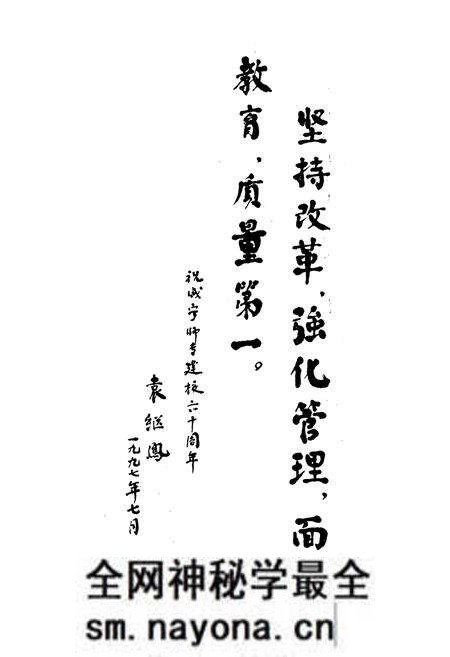 坚持改革、強化管理，面
教育、质量第一。
祝咸宁师专建校六十周年
袁继鳳
一九九七年七月
全网神秘学最全
sm.nayona.cn